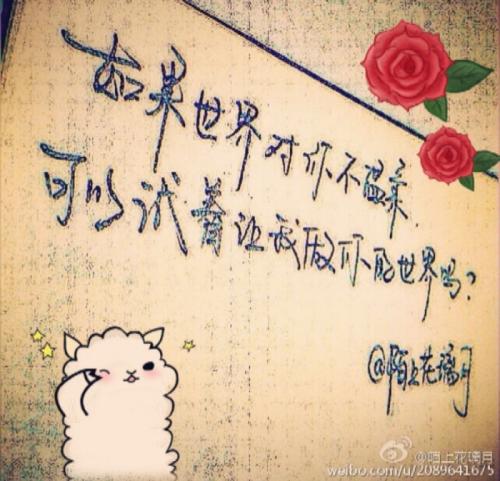 如果世界对你不温柔，
可以试着让我做你的世界吗？
@陌上花璃月
@陌上花璃月
weibo.com/u/2089641675